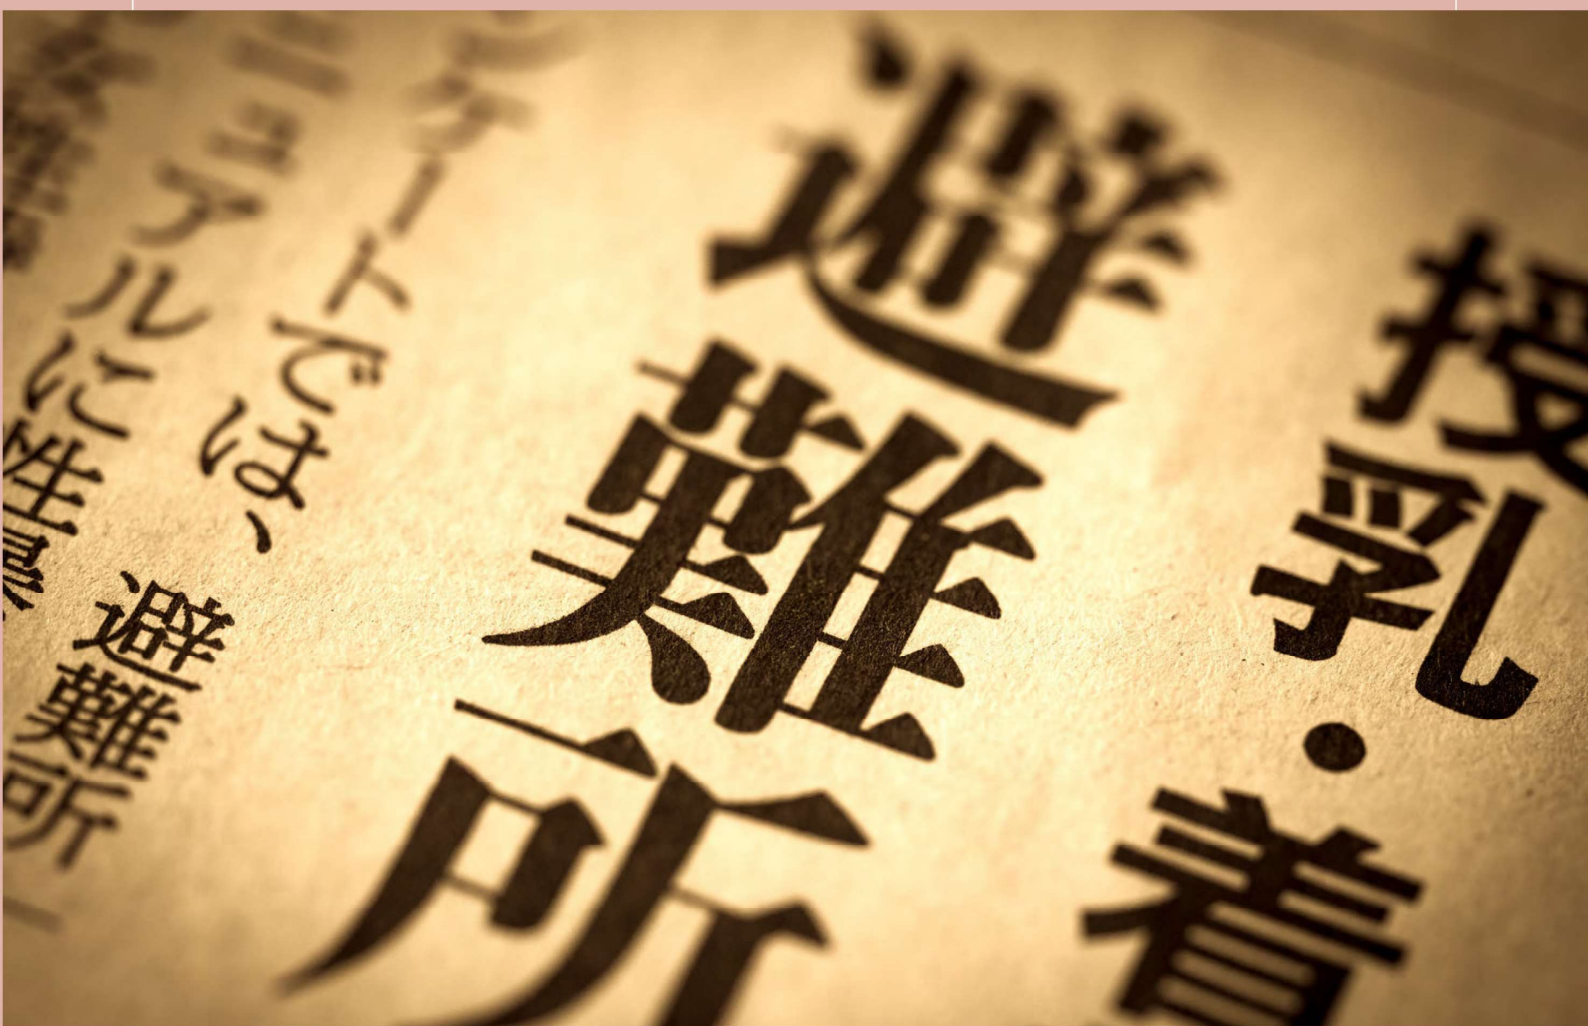 授乳・着
避難所
ケートでは、避難所
ニュアルに性暴